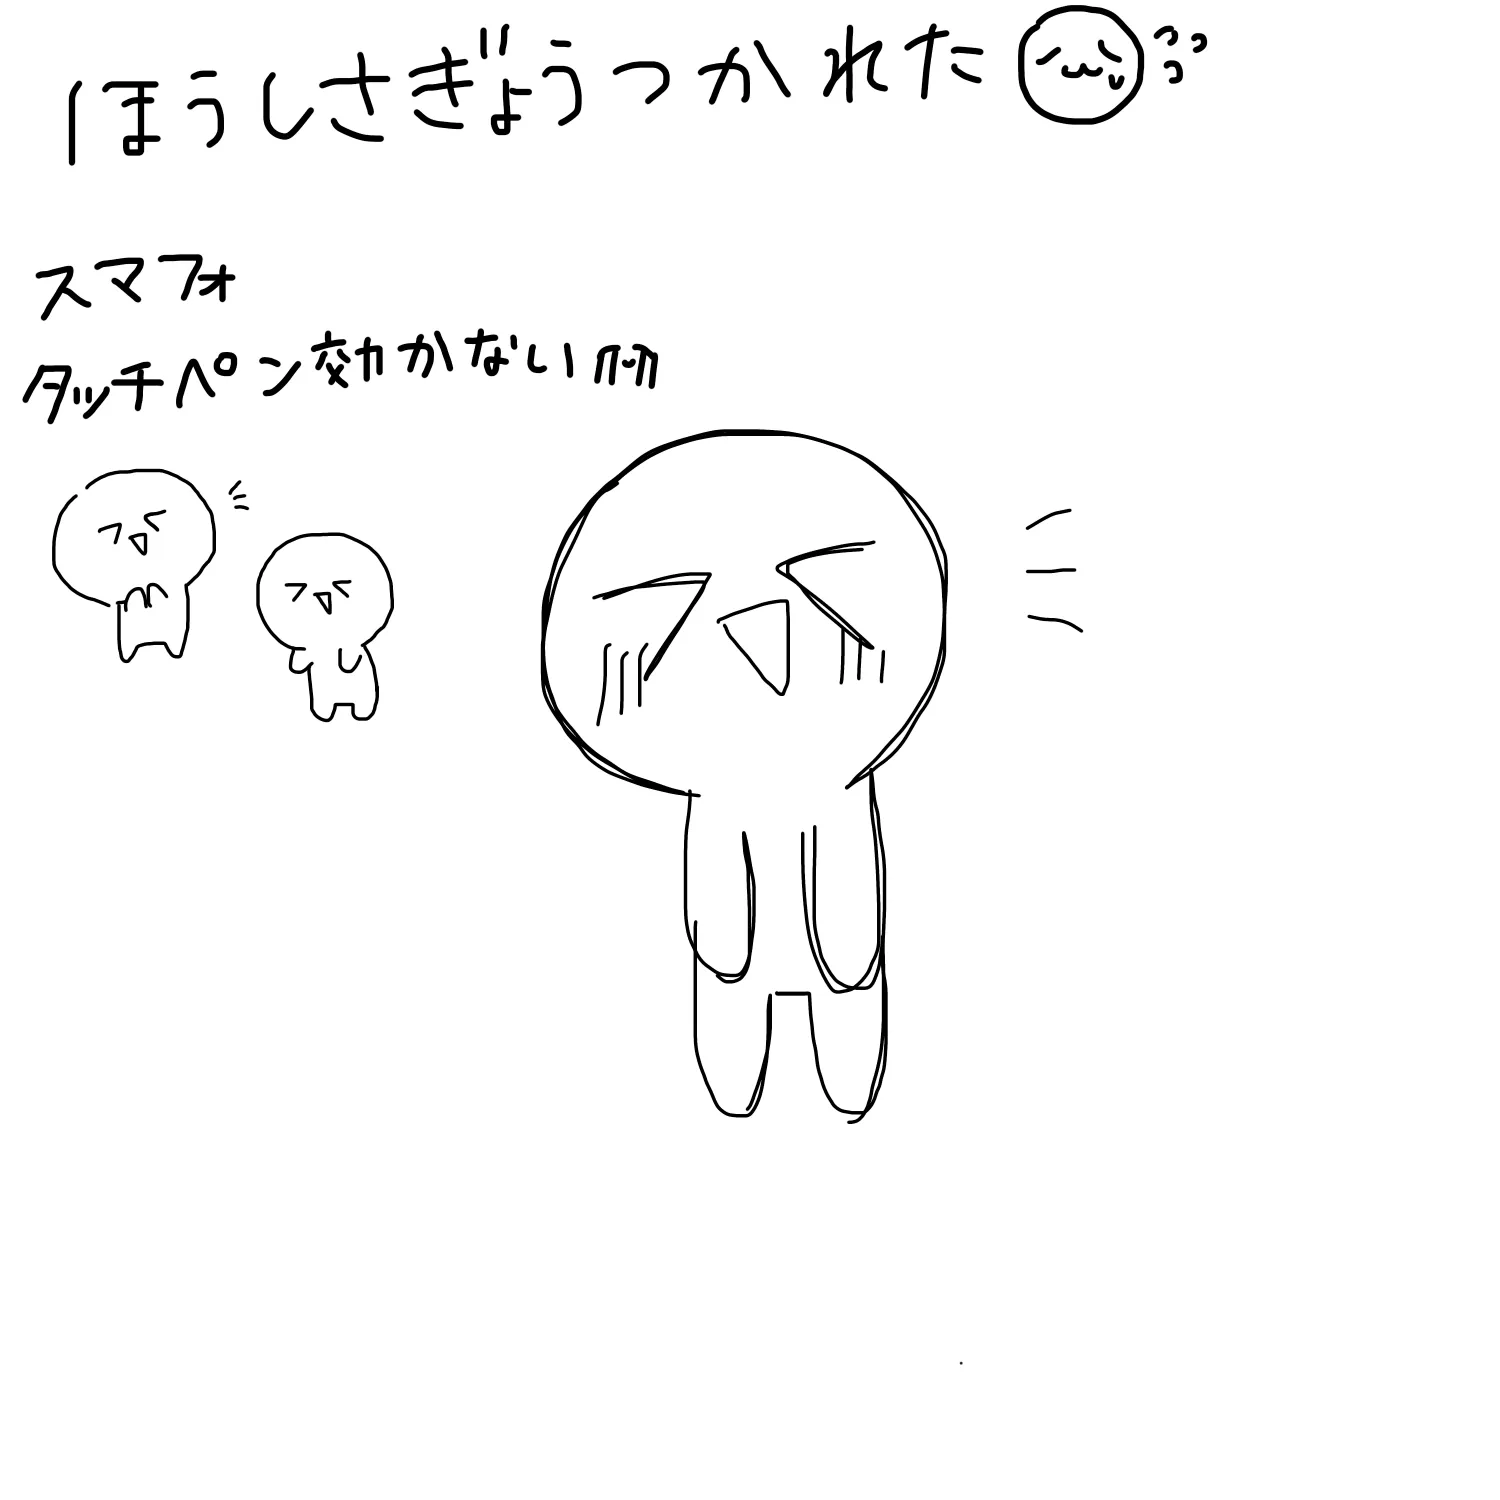 ほうしさぎょうつかれた
スマフォ
タッチペン効かない